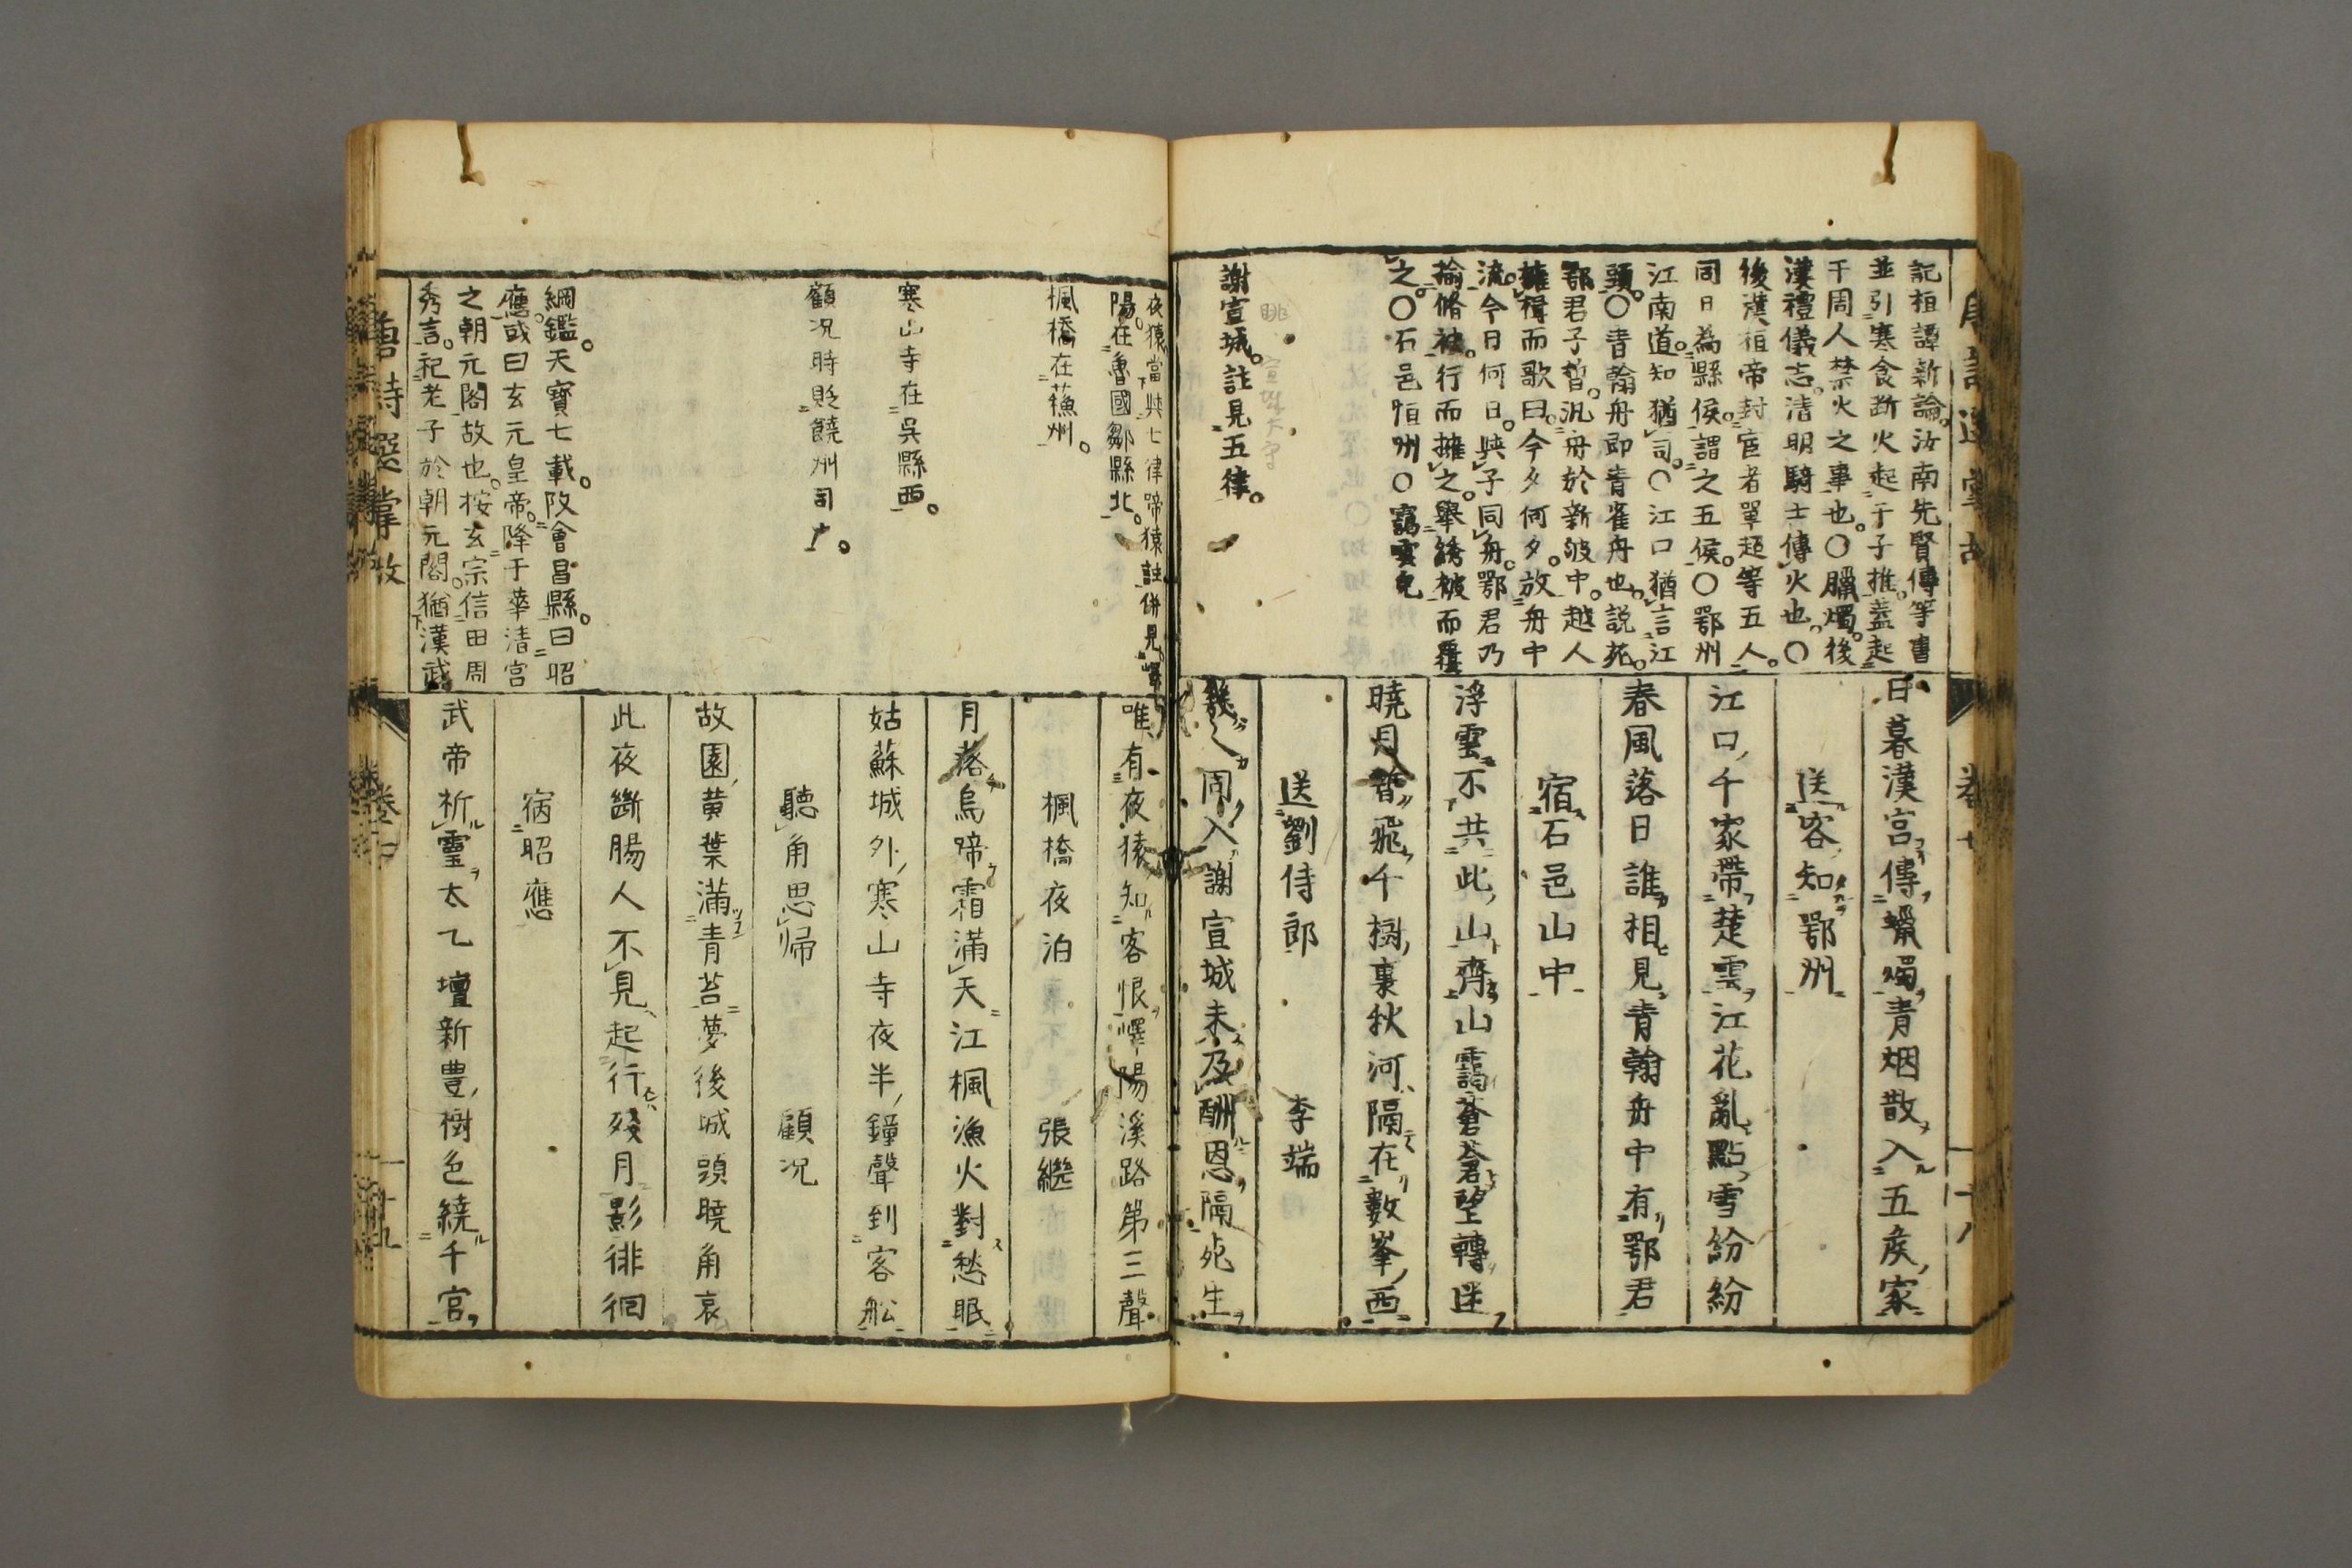 記桓譚新論汝南先賢傳等書
並引寒食断火起于子推蓋起
于周人禁火之事也○臘燭後
漢禮儀志清明騎士傳火也○
後漢桓帝封宦者單超等五人
同日為縣侯謂之五侯○鄂州
江南道知猶司○江口猶言江
頭○青翰舟即青雀舟也説苑
鄂君子晳汎舟於新波中越人
擁楫而歌曰今夕何夕放舟中
流今日何日與子同舟鄂君乃
揄脩袂行而擁之舉綉被而覆
之○石邑恒州○靄雲皃
謝宣城註見五律
日暮漢宮傳蠟燭青烟散入五侯家
送客知鄂州
江口千家帶楚雲江花亂點雪紛紛
春風落日誰相見青翰舟中有鄂君
宿石邑山中
浮雲不共此山齊山靄蒼蒼望轉迷
曉月暫飛千樹裏秋河隔在數峯西
送劉侍郎 李端
幾人同入謝宣城未及酬恩隔死生
夜猿當與七律啼猿註併見嶧
陽在魯國鄒縣北
楓橋在蘇州
寒山寺在吳縣西
顧况時貶饒州司戸
綱鑑天寶七載改會昌縣曰昭
應或曰玄元皇帝降于華清宮
之朝元閣故也按玄宗信田周
秀言祀老子於朝元閣猶漢武
唯有夜猿知客恨嶧陽溪路第三聲
楓橋夜泊 張繼
月落烏啼霜滿天江楓漁火對愁眠
姑蘇城外寒山寺夜半鐘聲到客船
聽角思歸 顧况
故園黄葉滿青苔夢後城頭曉角哀
此夜斷腸人不見起行殘月影徘徊
宿昭應
武帝祈靈太乙壇新豊樹色繞千官
唐詩選掌故 卷七 十九